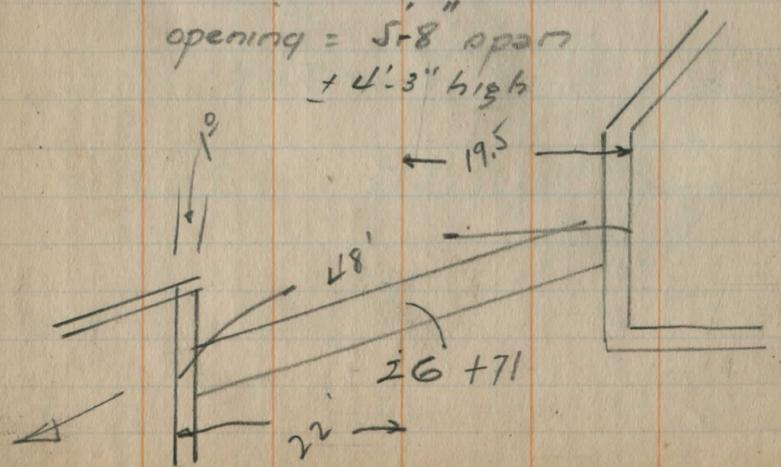 opening = 5'-8" span
± 4'-3" high
1.0
19.5
8'
26 +71
22'